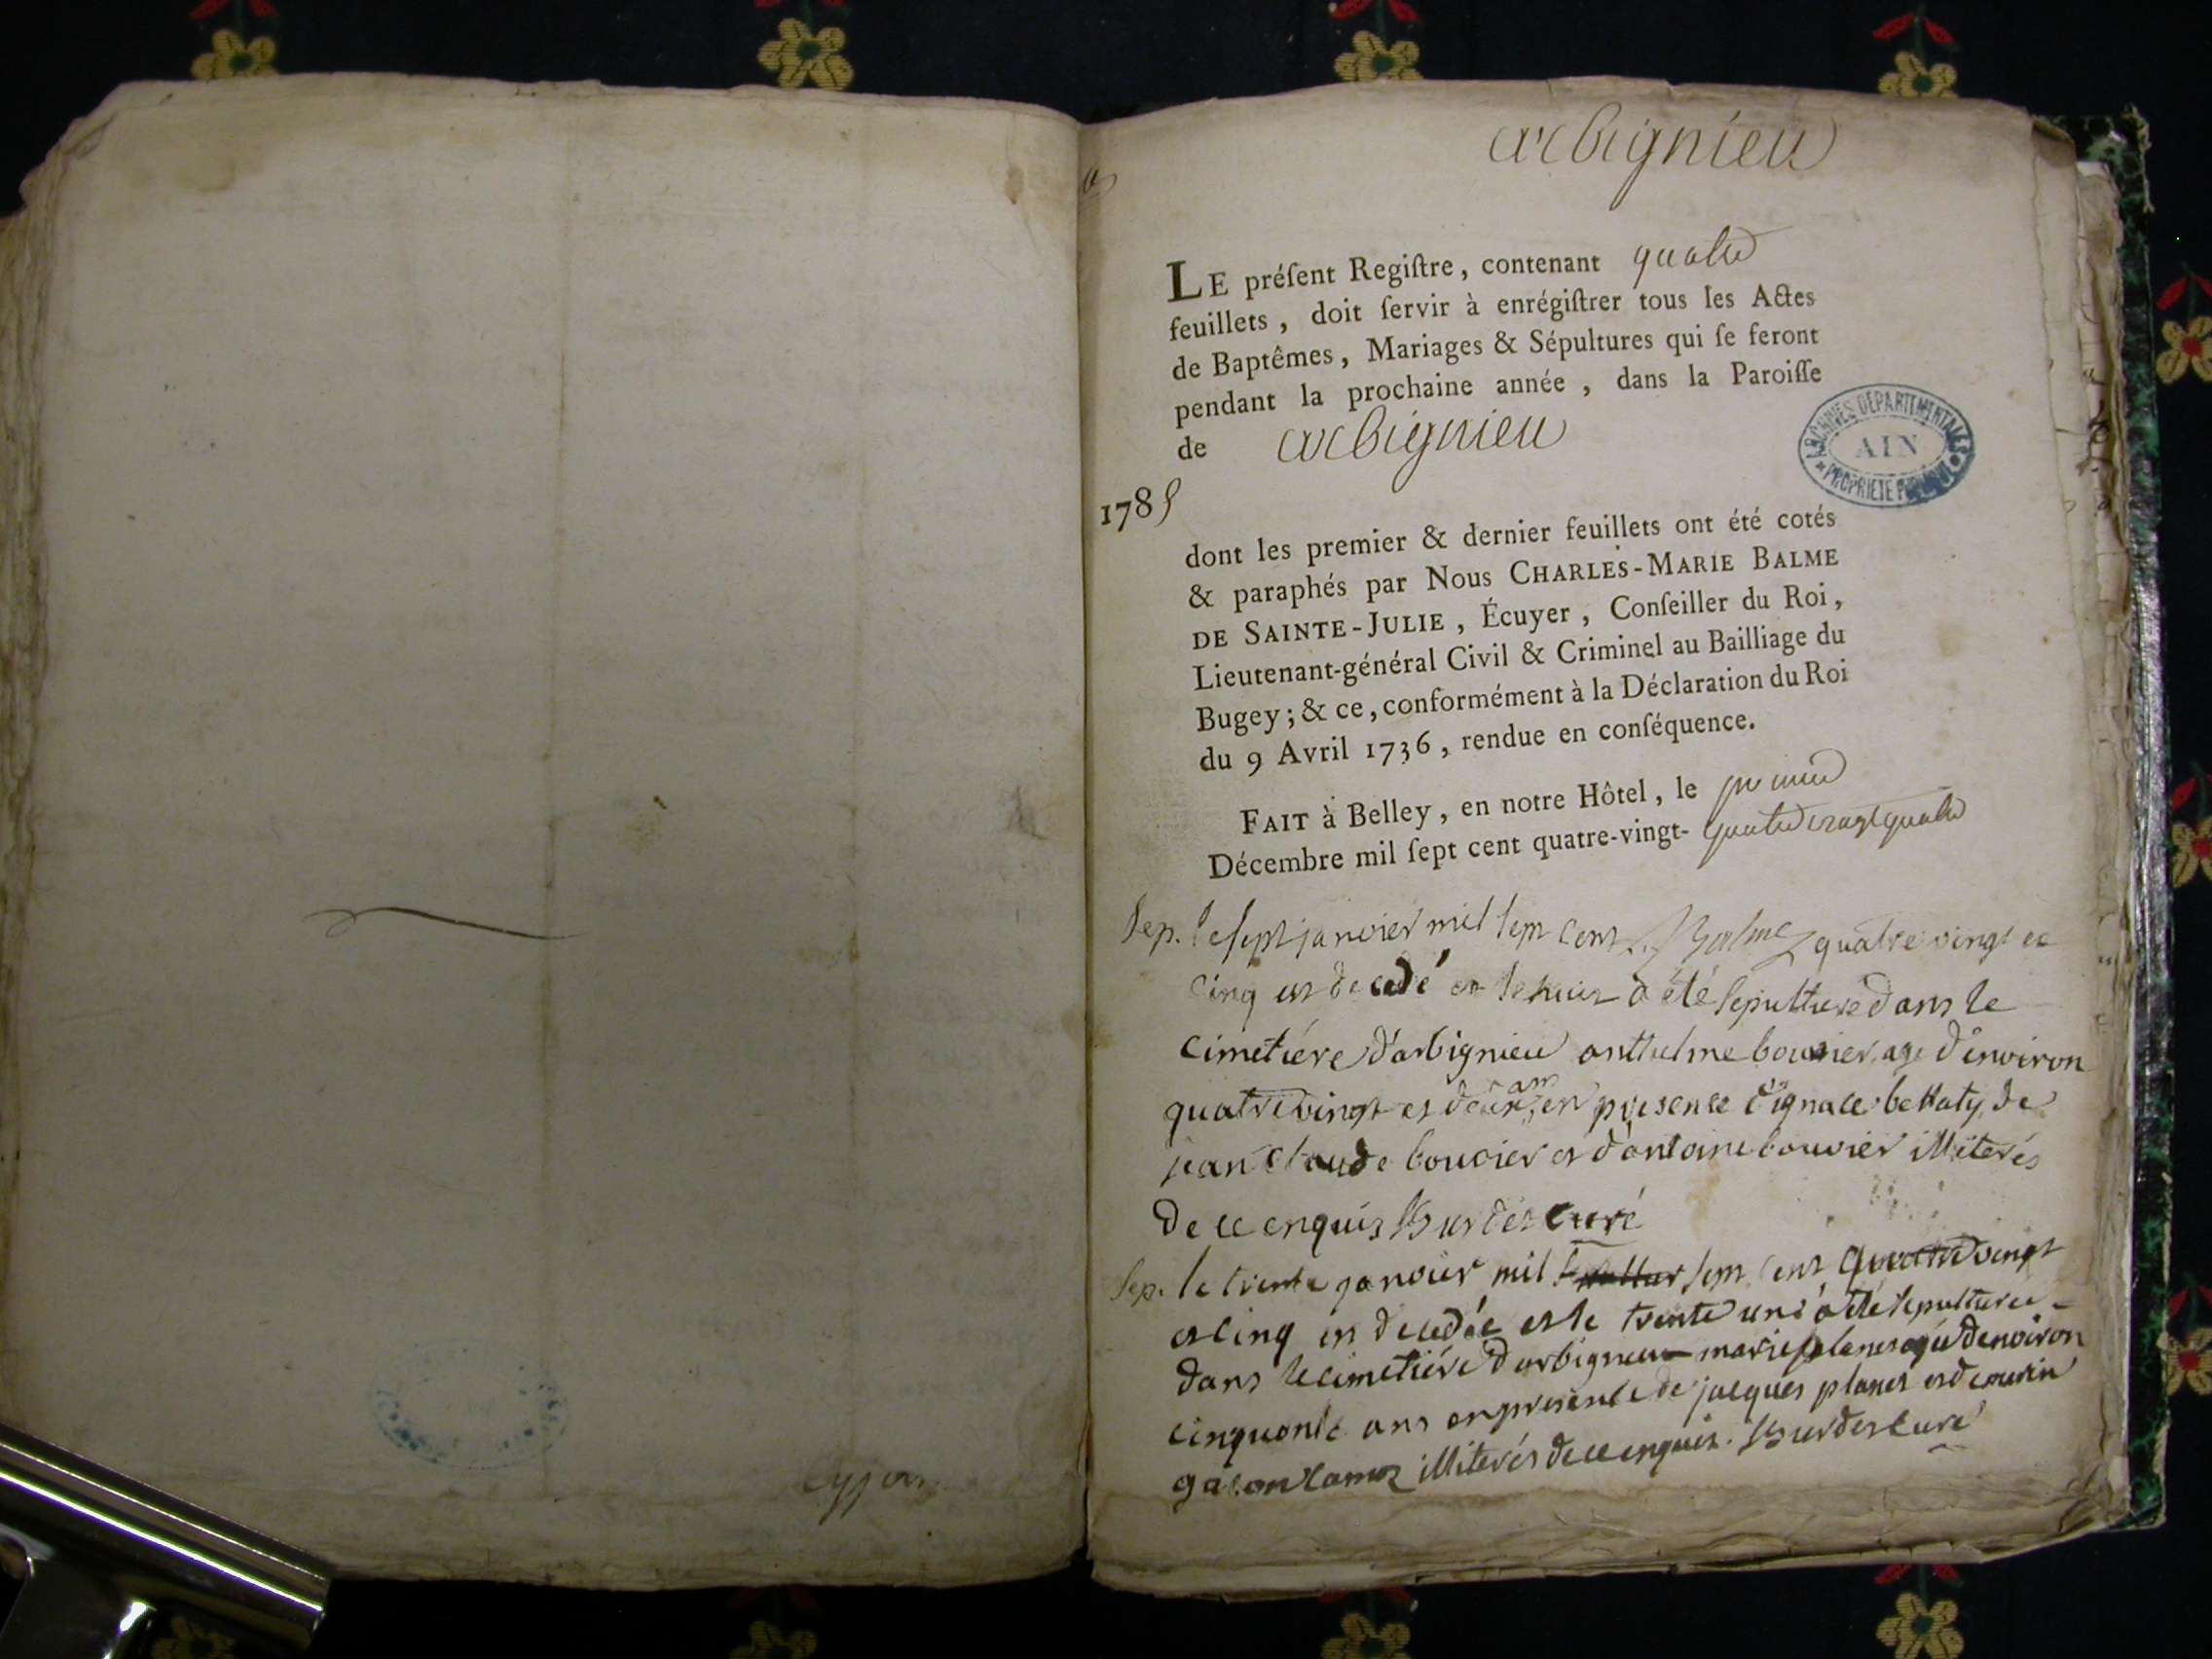 arbignieu
LE préſent Regiſtre, contenant quatre
feuillets, doit ſervir à enrégiſtrer tous les Actes
de Baptêmes, Mariages & Sépultures qui ſe feront
pendant la prochaine année, dans la Paroiſſe
de arbignieu
ARCHIVES DEPARTEMENTALES
AIN
PROPRIETE PUBLIQUE
1785
dont les premier & dernier feuillets ont été cotés
& paraphés par Nous CHARLES-MARIE BALME
DE SAINTE-JULIE, Écuyer, Conſeiller du Roi,
Lieutenant-général Civil & Criminel au Bailliage du
Bugey; & ce, conformément à la Déclaration du Roi
du 9 Avril 1736, rendue en conſéquence.
FAIT à Belley, en notre Hôtel, le premier
Décembre mil ſept cent quatre-vingt- quatre vingt quatre
Sep. le sept janvier mil sept cent Balme quatre vingt et
cinq est decedé et le huit a été sepulturé dans le
cimetiére d'arbignieu anthelme bouvier agé d'environ
quatre vingt et deux ans, en presence d'ignace de
jean claude bouvier et d'antoine bouvier illiterés
de ce enquis curé
Sep. le trente janvier mil sept cent quatre vingt
et cinq est decedée et le trente un a été sepulturée
dans le cimetiére d'arbignieu marie planet agée d'environ
cinquante ans en presence de jacques planet et de
illiterés de ce enquis. curé